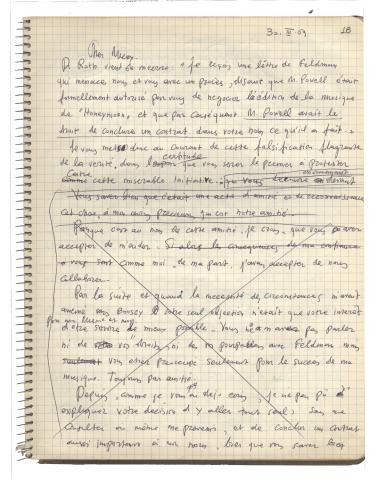 30. IV 69 18
Cher Mickey,
D. Roth vient de m'ecrire: "Je reçois une lettre de Feldman
qui menace nous et vous avec un procès, disant que M. Powell était
formellement autorisé par vous de negocier l'édition de la musique
de "Honeymoon, et que par conséquent M. Powell avait le
droit de conclure un contrat dans votre nom ce qu'il a fait".
Je vous mets donc au courant de cette falsification flagrante
de la verité, dans certitude que vous serez le premier a protester
contre cette miserable initiative. Je vous
Vous savez bien que c'était une acte d'amitié et de reconnaissance
cet choix, à mon avis, qui est notre amitié.
Parque c'est au nom de cette amitié, je crois, que vous avez
accepter de m'aider. Si alors les consequences de ma confiance
a vous sont comme moi, de ma part, j'avais accepter de nous
collaborer.
Par la suite et quand la necesité des circonstances m'avait
amené vous Boosey le votre seul objection n'était que votre interet
pour mon œuvre et moi
d'être servire de mieux possible. Vous m'avez pas parler
ni de vos "droits, ni de vos pourparlers avec Feldman mais
vous etiez preoccupé seulement pour le succes de ma
musique. Toujours par amitié.
Depuis, comme je vous ai deja ecris, je ne pas pû
expliquer votre decision d'y aller tout seul; sans me
consulter ou même me prevenir, et de conclure un contrat
aussi important à mon nom, bien que vous savez bien